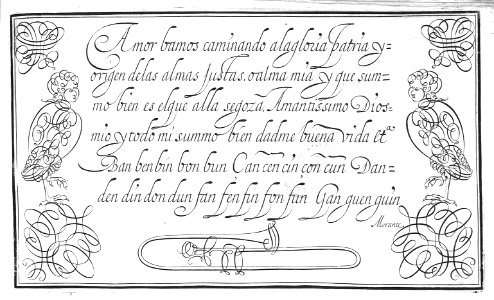 Amor bamos caminando alagloria patria y-
origen delas almas Justas. o alma mia y que sum-
mo bien es elque alla segoza. Amantissimo Dios-
mio y todo mi summo bien dadme buena vida et.a
Ban ben bin bon bun Can cen cin con cun Dan-
den din don dun fan fen fin fon fun Gan guen guin
Morante